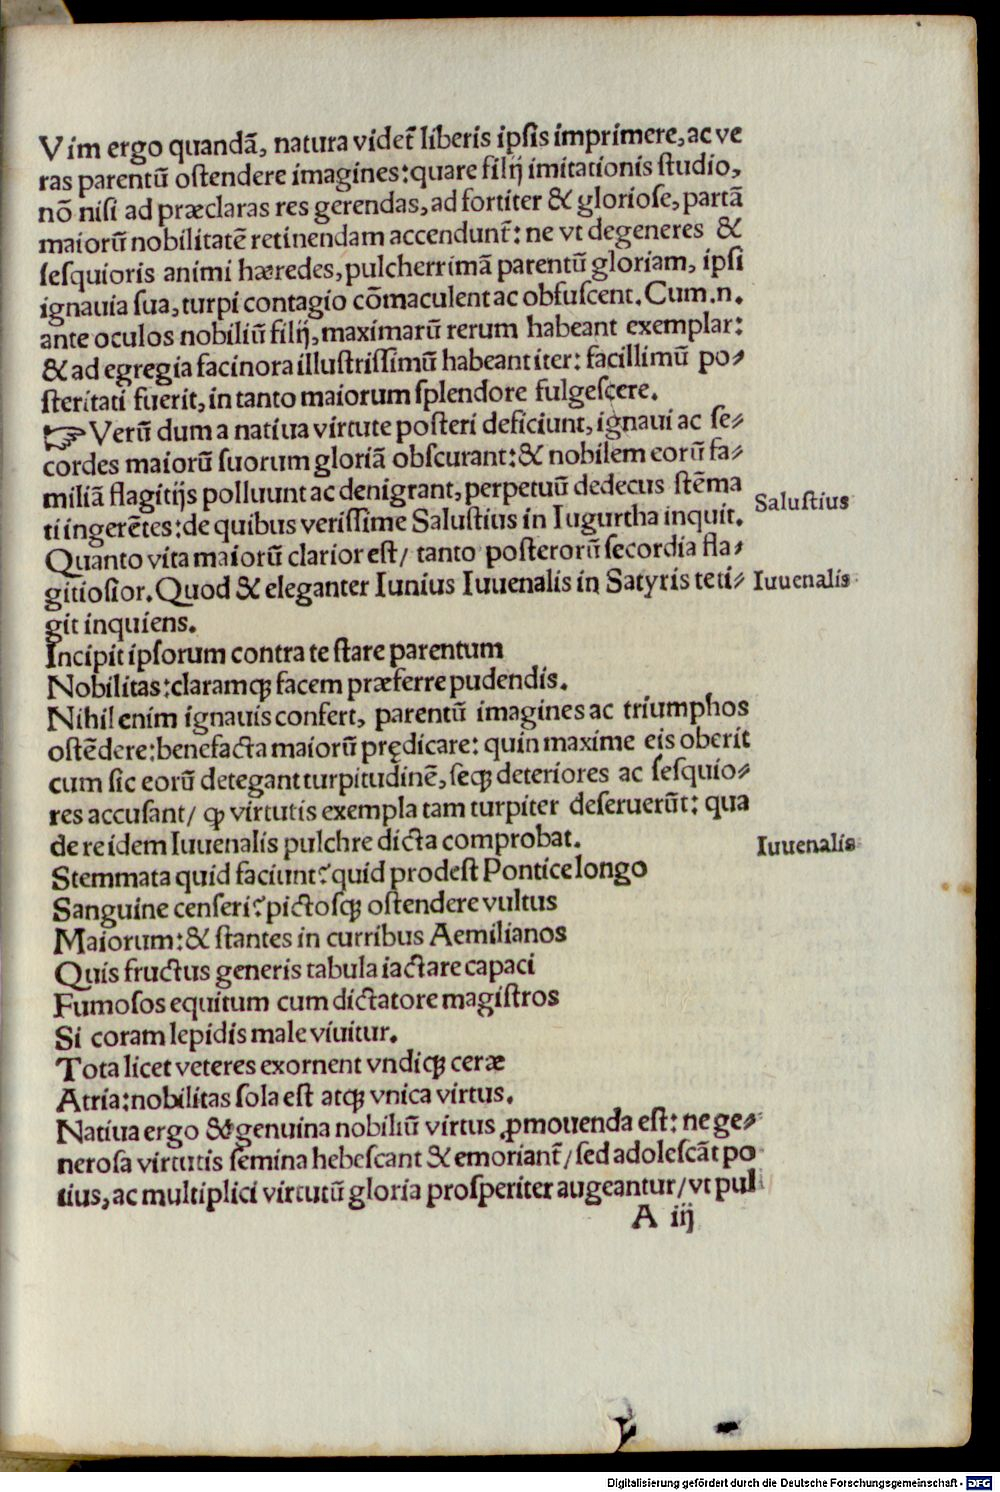 Vim ergo quandã, natura videt̃ liberis ipſis imprimere, ac ve
ras parentũ oſtendere imagines: quare filij imitationis ſtudio,
nõ niſi ad præclaras res gerendas, ad fortiter & glorioſe, partã
maiorũ nobilitatẽ retinendam accendunt̃: ne vt degeneres &
ſeſquioris animi hæredes, pulcherrimã parentũ gloriam, ipſi
ignauia ſua, turpi contagio cõmaculent ac obfuſcent. Cum .n.
ante oculos nobiliũ filij, maximarũ rerum habeant exemplar:
& ad egregia facinora illuſtriſſimũ habeant iter: facillimũ po⸗
ſteritati fuerit, in tanto maiorum ſplendore fulgeſcere.
☞ Verũ dum a natiua virtute poſteri deficiunt, ignaui ac ſe⸗
cordes maiorũ ſuorum gloriã obſcurant: & nobilem eorũ fa⸗
miliã flagitijs polluunt ac denigrant, perpetuũ dedecus ſtẽma
ti ingerẽtes: de quibus veriſſime Saluſtius in Iugurtha inquit.
Saluſtius
Quanto vita maiorũ clarior eſt/ tanto poſterorũ ſecordia fla⸗
gitioſior. Quod & eleganter Iunius Iuuenalis in Satyris teti⸗
Iuuenalis
git inquiens.
Incipit ipſorum contra te ſtare parentum
Nobilitas: claramqꝫ facem præferre pudendis.
Nihil enim ignauis confert, parentũ imagines ac triumphos
oſtẽdere: benefacta maiorũ prędicare: quin maxime eis oberit
cum ſic eorũ detegant turpitudinẽ, ſeqꝫ deteriores ac ſeſquio⸗
res accuſant/ ꝙ virtutis exempla tam turpiter deſeruerũt: qua
de re idem Iuuenalis pulchre dicta comprobat.
Iuuenalis
Stemmata quid faciunt? quid prodeſt Pontice longo
Sanguine cenſeri? pictoſqꝫ oſtendere vultus
Maiorum: & ſtantes in curribus Aemilianos
Quis fructus generis tabula iactare capaci
Fumoſos equitum cum dictatore magiſtros
Si coram lepidis male viuitur.
Tota licet veteres exornent vndiqꝫ ceræ
Atria: nobilitas ſola eſt atqꝫ vnica virtus.
Natiua ergo & genuina nobiliũ virtus ꝓmouenda eſt: ne ge⸗
neroſa virtutis ſemina hebeſcant & emoriant̃/ ſed adoleſcãt po
tius, ac multiplici virtutũ gloria proſperiter augeantur/ vt pul
A iij
Digitalisierung gefördert durch die Deutsche Forschungsgemeinschaft - DFG